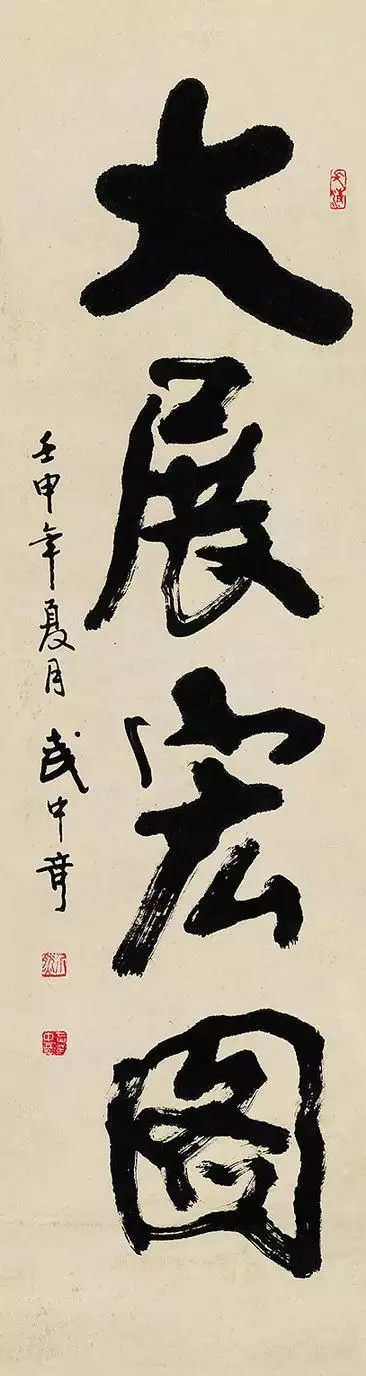 大展宏图
壬申年夏月 武中奇